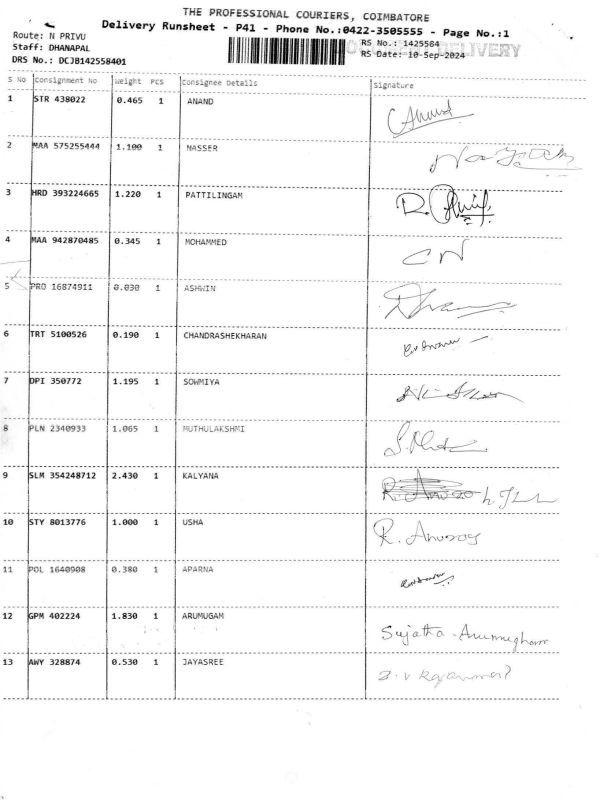 THE PROFESSIONAL COURIERS, COIMBATORE
Delivery Runsheet - P41 - Phone No.:0422-3505555 - Page No.:1
Route: N PRIVU
Staff: DHANAPAL
DRS No.: DCJB142558401
RS No.: 1425584
RS Date: 10-Sep-2024
DELIVERY
S No Consignment No Weight PCS Consignee Details Signature
1 STR 438022 0.465 1 ANAND Anand
2 MAA 575255444 1.100 1 NASSER
3 HRD 393224665 1.220 1 PATTILINGAM
4 MAA 942870485 0.345 1 MOHAMMED CN
5 PRO 16874911 0.030 1 ASHWIN
6 TRT 5100526 0.190 1 CHANDRASHEKHARAN
7 DPI 350772 1.195 1 SOWMIYA
8 PLN 2340933 1.065 1 MUTHULAKSHMI
9 SLM 354248712 2.430 1 KALYANA
10 STY 8013776 1.000 1 USHA R. Anusoy
11 POL 1640908 0.380 1 APARNA
12 GPM 402224 1.830 1 ARUMUGAM Sujatha - Arumugham
13 AWY 328874 0.530 1 JAYASREE